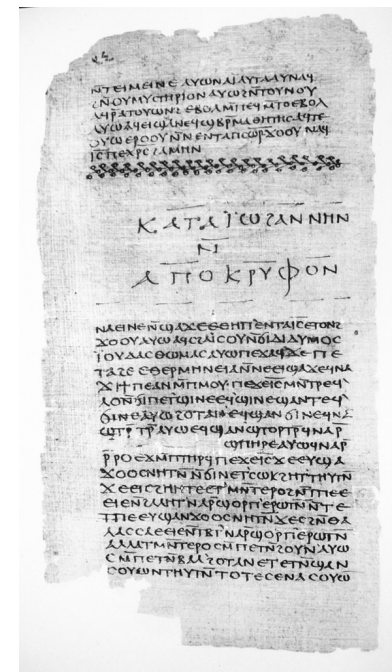 ⲛ̄ⲧⲉⲓⲙⲉⲓⲛⲉ ⲁⲩⲱ ⲛⲁⲓ̈ ⲁⲩⲧⲁⲁⲩ ⲛⲁϥ
ϩⲛ̄ⲟⲩⲙⲩⲥⲧⲏⲣⲓⲟⲛ ⲁⲩⲱ ϩⲛ̄ⲧⲟⲩⲛⲟⲩ
ⲁϥⲣ̄ⲁⲧⲟⲩⲱⲛϩ ⲉⲃⲟⲗ ⲙ̄ⲡⲉϥⲙ̄ⲧⲟ ⲉⲃⲟⲗ
ⲁⲩⲱ ⲁϥⲉⲓ ϣⲁ ⲛⲉϥϣⲃⲣ̄ⲙⲁⲑⲏⲧⲏⲥ ⲁϥⲧⲉ
ⲟⲩⲱ ⲉⲣⲟⲟⲩ ⲛ̄ⲛⲉⲛⲧⲁⲡⲥⲱ̅ⲣ̅ ϫⲟⲟⲩ ⲛⲁϥ
ⲓ̅ⲥ̅ ⲡⲉⲭ̅ⲣ̅ⲥ̅ ϩⲁⲙⲏⲛ
ⲕⲁⲧⲁ ⲓ̈ⲱϩⲁⲛⲛⲏⲛ
ⲛ̄
ⲁⲡⲟⲕⲣⲩⲫⲟⲛ
ⲛⲁⲉⲓ ⲛⲉ ⲛ̄ϣⲁϫⲉ ⲉⲑⲏⲡ ⲉⲛⲧⲁⲓ̅ⲥ̅ ⲉⲧⲟⲛϩ
ϫⲟⲟⲩ ⲁⲩⲱ ⲁϥⲥϩⲁⲓ̈ⲥⲟⲩ ⲛ̄ϭⲓ ⲇⲓⲇⲩⲙⲟⲥ
ⲓ̈ⲟⲩⲇⲁⲥ ⲑⲱⲙⲁⲥ ⲁⲩⲱ ⲡⲉϫⲁϥ ϫⲉ ⲡⲉ
ⲧⲁϩⲉ ⲉⲑⲉⲣⲙⲏⲛⲉⲓⲁ ⲛ̄ⲛⲉⲉⲓϣⲁϫⲉ ϥⲛⲁ
ϫⲓ ϯⲡⲉ ⲁⲛ ⲙ̄ⲡⲙⲟⲩ ⲡⲉϫⲉ ⲓ̅ⲥ̅ ⲙⲛ̄ⲧⲣⲉϥ
ⲗⲟ ⲛ̄ϭⲓ ⲡⲉⲧϣⲓⲛⲉ ⲉϥϣⲓⲛⲉ ϣⲁⲛⲧⲉϥ
ϭⲓⲛⲉ ⲁⲩⲱ ϩⲟⲧⲁⲛ ⲉϥϣⲁⲛϭⲓⲛⲉ ϥⲛⲁ
ϣⲧⲣ̄ⲧⲣ̄ ⲁⲩⲱ ⲉϥϣⲁⲛϣⲧⲟⲣⲧⲣ̄ ϥⲛⲁⲣ̄
ϣⲡⲏⲣⲉ ⲁⲩⲱ ϥⲛⲁⲣ̄
ⲣ̄ⲣⲟ ⲉϫⲙ̄ ⲡⲧⲏⲣϥ ⲡⲉϫⲉ ⲓ̅ⲥ̅ ϫⲉ ⲉⲩϣⲁ
ϫⲟⲟⲥ ⲛⲏⲧⲛ̄ ⲛ̄ϭⲓ ⲛⲉⲧⲥⲱⲕ ϩⲏⲧⲧⲏⲩⲧⲛ̄
ϫⲉ ⲉⲓⲥϩⲏⲏⲧⲉ ⲉⲧⲙⲛ̄ⲧⲉⲣⲟ ϩⲛ̄ⲧⲡⲉ ⲉ
ⲉⲓⲉ ⲛ̄ϩⲁⲗⲏⲧ ⲛⲁⲣ̄ϣⲟⲣⲡ ⲉⲣⲱⲧⲛ̄ ⲛ̄ⲧⲉ
ⲧⲡⲉ ⲉⲩϣⲁⲛϫⲟⲟⲥ ⲛⲏⲧⲛ̄ ϫⲉ ⲥϩⲛ̄ⲑⲁ
ⲗⲁⲥⲥⲁ ⲉⲉⲓⲉ ⲛ̄ⲧⲃⲧ ⲛⲁⲣ̄ϣⲟⲣⲡ ⲉⲣⲱⲧⲛ̄
ⲁⲗⲗⲁ ⲧⲙⲛ̄ⲧⲉⲣⲟ ⲥⲙ̄ⲡⲉⲧⲛ̄ϩⲟⲩⲛ ⲁⲩⲱ
ⲥⲙ̄ⲡⲉⲧⲛ̄ⲃⲁⲗ ϩⲟⲧⲁⲛ ⲉⲧⲉⲧⲛ̄ϣⲁⲛ
ⲥⲟⲩⲱⲛ ⲧⲏⲩⲧⲛ̄ ⲧⲟⲧⲉ ⲥⲉⲛⲁⲥⲟⲩⲱ